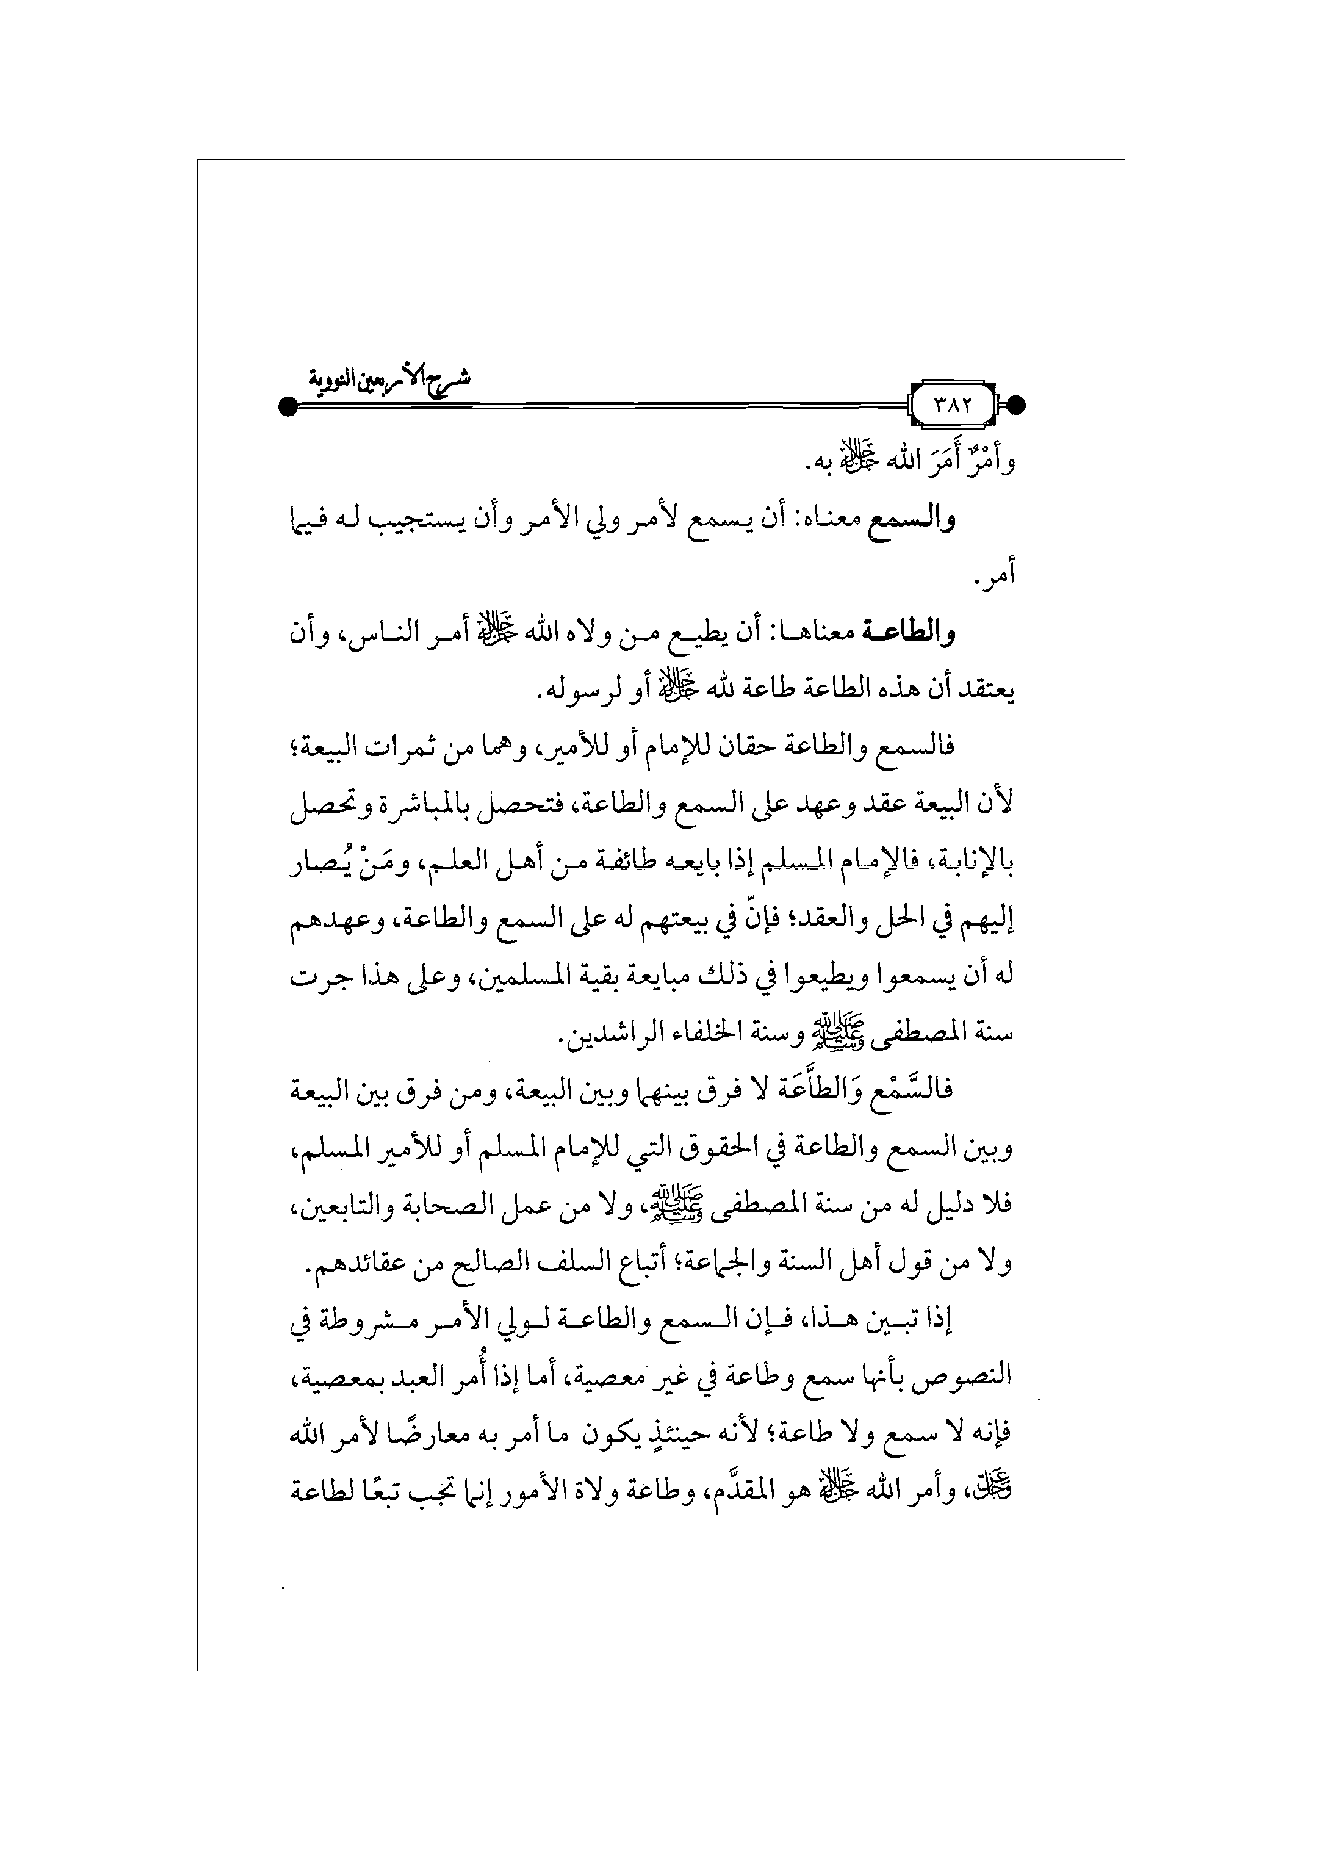 شرح الأربعين النووية
٣٨٢
وأمْرٌ أَمَرَ الله ﷻ به.
والسمع معناه: أن يسمع لأمر ولي الأمر وأن يستجيب له فيما
أمر.
والطاعة معناها: أن يطيع من ولاه الله ﷻ أمر الناس، وأن
يعتقد أن هذه الطاعة طاعة لله ﷻ أو لرسوله.
فالسمع والطاعة حقان للإمام أو للأمير، وهما من ثمرات البيعة؛
لأن البيعة عقد وعهد على السمع والطاعة، فتحصل بالمباشرة وتحصل
بالإنابة، فالإمام المسلم إذا بايعه طائفة من أهل العلم، ومَنْ يُصار
إليهم في الحل والعقد؛ فإنّ في بيعتهم له على السمع والطاعة، وعهدهم
له أن يسمعوا ويطيعوا في ذلك مبايعة بقية المسلمين، وعلى هذا جرت
سنة المصطفى ﷺ وسنة الخلفاء الراشدين.
فالسَّمْع وَالطاَّعَة لا فرق بينهما وبين البيعة، ومن فرق بين البيعة
وبين السمع والطاعة في الحقوق التي للإمام المسلم أو للأمير المسلم،
فلا دليل له من سنة المصطفى ﷺ، ولا من عمل الصحابة والتابعين،
ولا من قول أهل السنة والجماعة؛ أتباع السلف الصالح من عقائدهم.
إذا تبين هذا، فإن السمع والطاعة لولي الأمر مشروطة في
النصوص بأنها سمع وطاعة في غير معصية، أما إذا أُمر العبد بمعصية،
فإنه لا سمع ولا طاعة؛ لأنه حينئذٍ يكون ما أمر به معارضًا لأمر الله
عز وجل، وأمر الله ﷻ هو المقدَّم، وطاعة ولاة الأمور إنما تجب تبعًا لطاعة